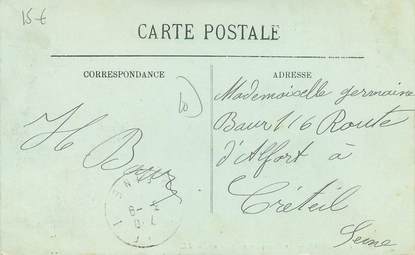 15 €
CARTE POSTALE
CORRESPONDANCE
ADRESSE
Mademoiselle germaine
Baur 116 Route
d'Alfort à
Créteil
Seine
H Baur